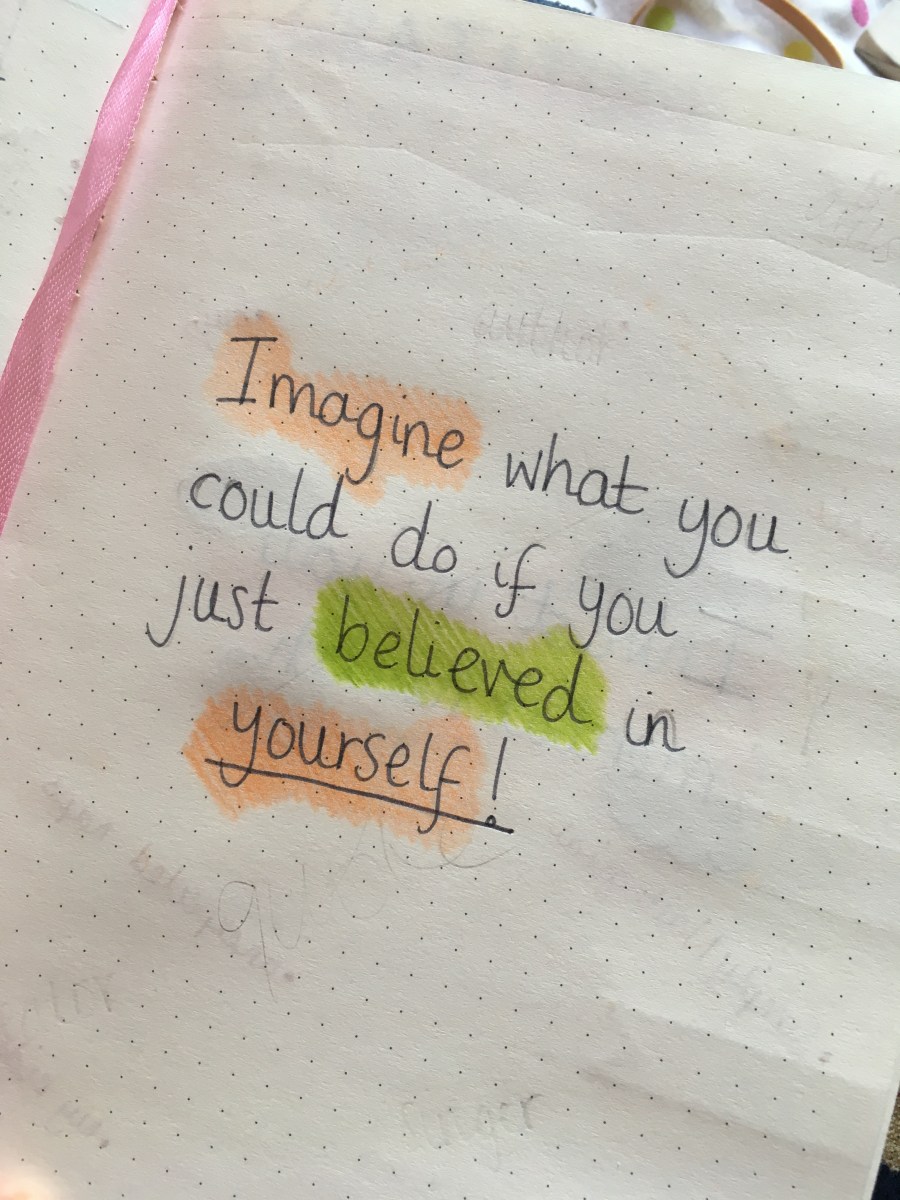 author
Imagine what you
could do if you
just believed in
yourself!